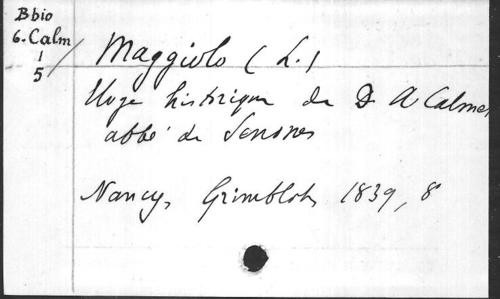 Bbio
6. Calm
1
5
Maggiolo (L.)
Eloge historique de D. A Calmet,
abbé de Senones
Nancy, Grimblot, 1839, 8°